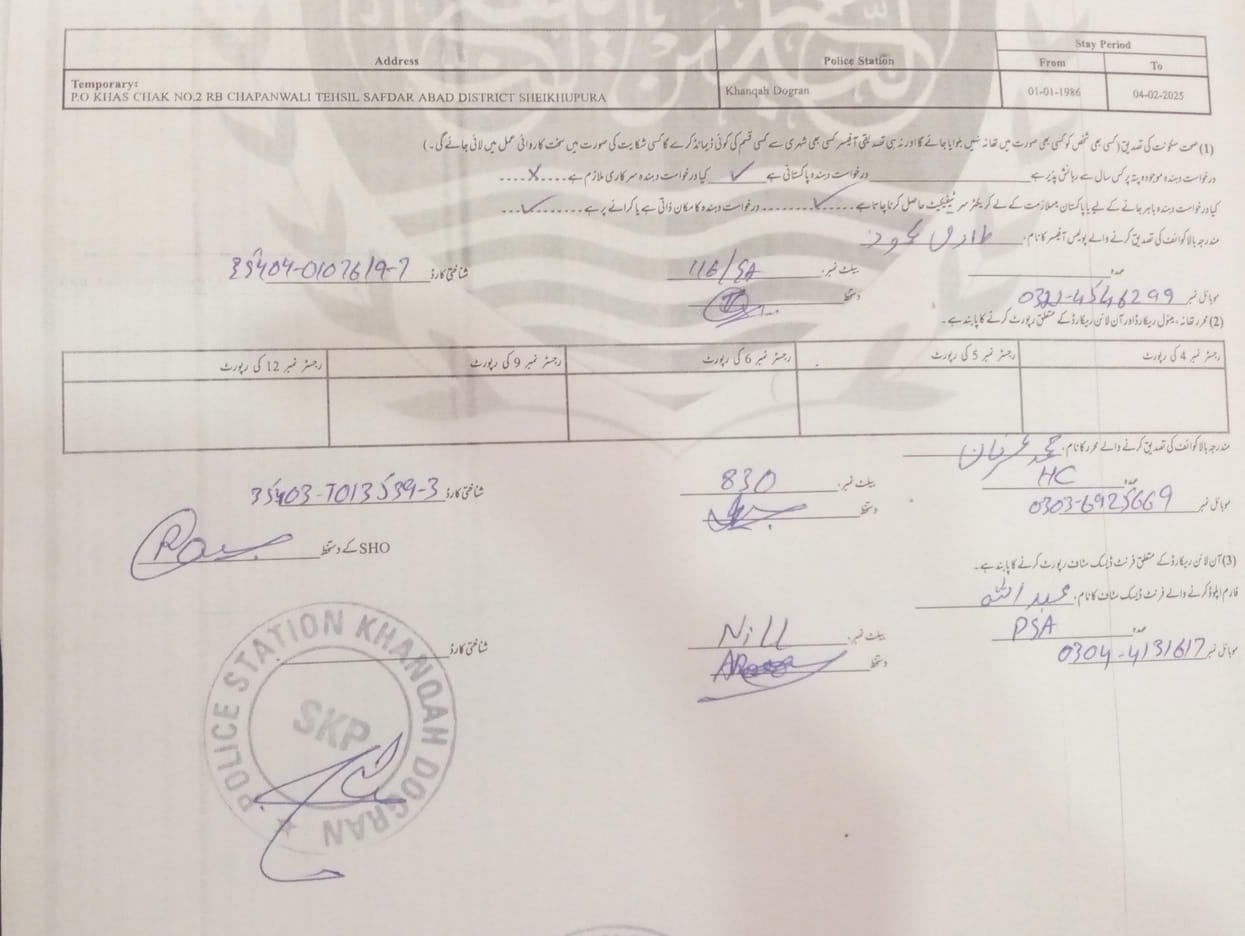 Address Police Station Stay Period
From To
Temporary:
P.O KHAS CHAK NO.2 RB CHAPANWALI TEHSIL SAFDAR ABAD DISTRICT SHEIKHUPURA Khanqah Dogran 01-01-1986 04-02-2025
(1) صحت سکونت کی تصدیق (کسی بھی شخص کو کسی بھی صورت میں تھانہ نہیں بلوایا جائے گا اور نہ ہی تصدیقی آفیسر کسی بھی شہری سے کسی قسم کی کوئی ڈیمانڈ کرے گا کسی شکایت کی صورت میں سخت کاروائی عمل میں لائی جائے گی۔)
درخواست دہندہ موجودہ پتہ پر کس سال سے رہائش پذیر ہے درخواست دہندہ پاکستانی ہے ✓ کیا درخواست دہندہ سرکاری ملازم ہے ....X....
کیا درخواست دہندہ باہر جانے کے لیے یا پاکستان میں ملازمت کے لے کریکٹر سرٹیفیکیٹ حاصل کرنا چاہتا ہے ....✓.... درخواست دہندہ کا مکان ذاتی ہے یا کرائے پر ہے ....✓....
مندرجہ بالا کوائف کی تصدیق کرنے والے پولیس آفیسر کا نام۔ طارق محمود
عہدہ بیلٹ نمبر۔ 116/SA شناختی کارڈ 35404-0107619-7
موبائل نمبر 0322-4546299 دستخط
(2) محرر تھانہ، مینول ریکارڈ اور آن لائن ریکارڈ کے متعلق رپورٹ کرنے کا پابند ہے۔
رجسٹر نمبر 4 کی رپورٹ رجسٹر نمبر 5 کی رپورٹ رجسٹر نمبر 6 کی رپورٹ رجسٹر نمبر 9 کی رپورٹ رجسٹر نمبر 12 کی رپورٹ
مندرجہ بالا کوائف کی تصدیق کرنے والے محرر کا نام۔ محمد عرفان
عہدہ HC بیلٹ نمبر۔ 830 شناختی کارڈ 35403-T013539-3
موبائل نمبر 0303-6925669 دستخط
SHO کے دستخط
(3) آن لائن ریکارڈ کے متعلق فرنٹ ڈیسک سٹاف رپورٹ کرنے کا پابند ہے۔
فارم اپلوڈ کرنے والے فرنٹ ڈیسک سٹاف کا نام۔ عبداللہ
عہدہ PSA بیلٹ نمبر۔ Nill شناختی کارڈ
موبائل نمبر 0304-4131617 دستخط
POLICE STATION KHANQAH DOGRAN
SKP